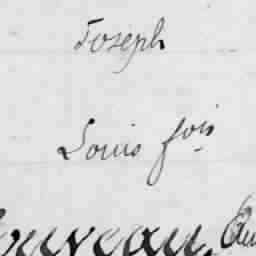 Joseph
Louis fois
ouveau,